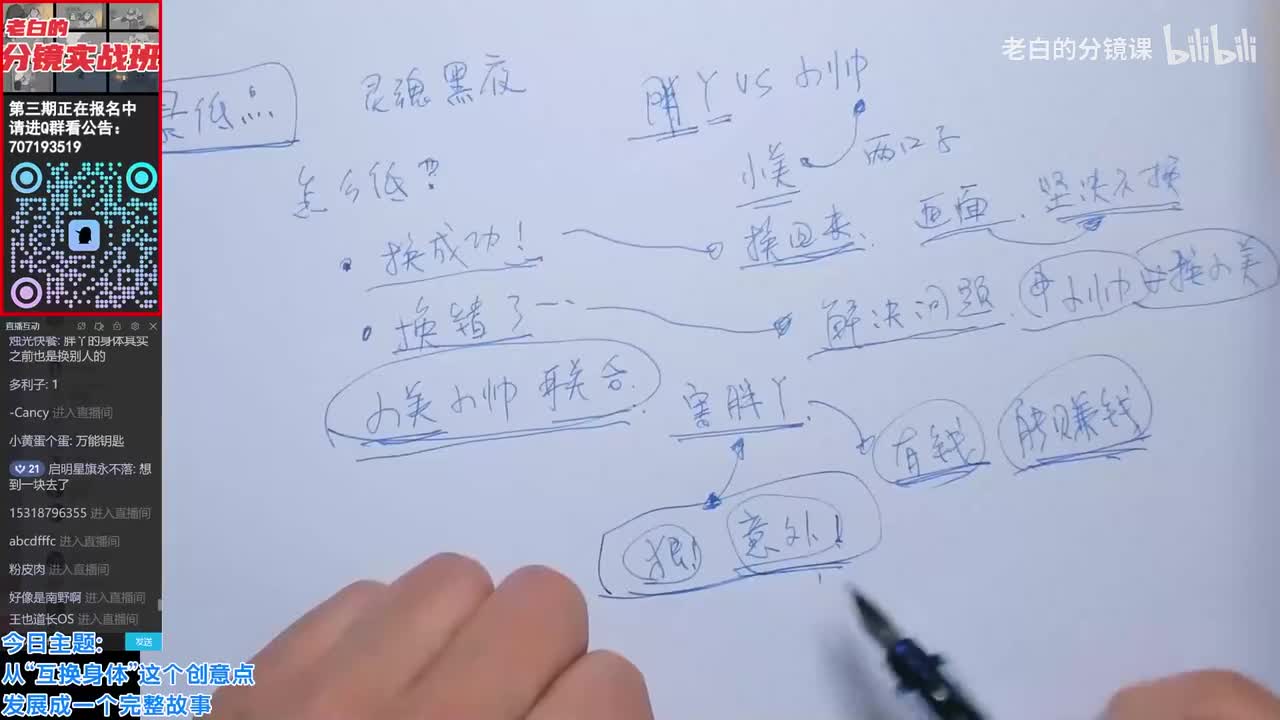 老白的
分镜实战班
第三期正在报名中
请进Q群看公告：
707193519
直播互动
烛光快餐: 胖丫的身体其实
之前也是换别人的
多利子: 1
-Cancy 进入直播间
小黄蛋个蛋: 万能钥匙
21 启明星旗永不落: 想
到一块去了
15318796355 进入直播间
abcdfffc 进入直播间
粉皮肉 进入直播间
好像是南野啊 进入直播间
王也道长OS 进入直播间
发送
今日主题：
从“互换身体”这个创意点
发展成一个完整故事
老白的分镜课 bilibili
最低点
灵魂黑夜
胖丫 VS 小帅
小美
两口子
怎么低？
换成功！
换回来.
画面.
坚决不换
换错了
解决问题.
小帅
换小美
小美小帅 联合.
害胖丫.
有钱
能赚钱
狠!
意外!